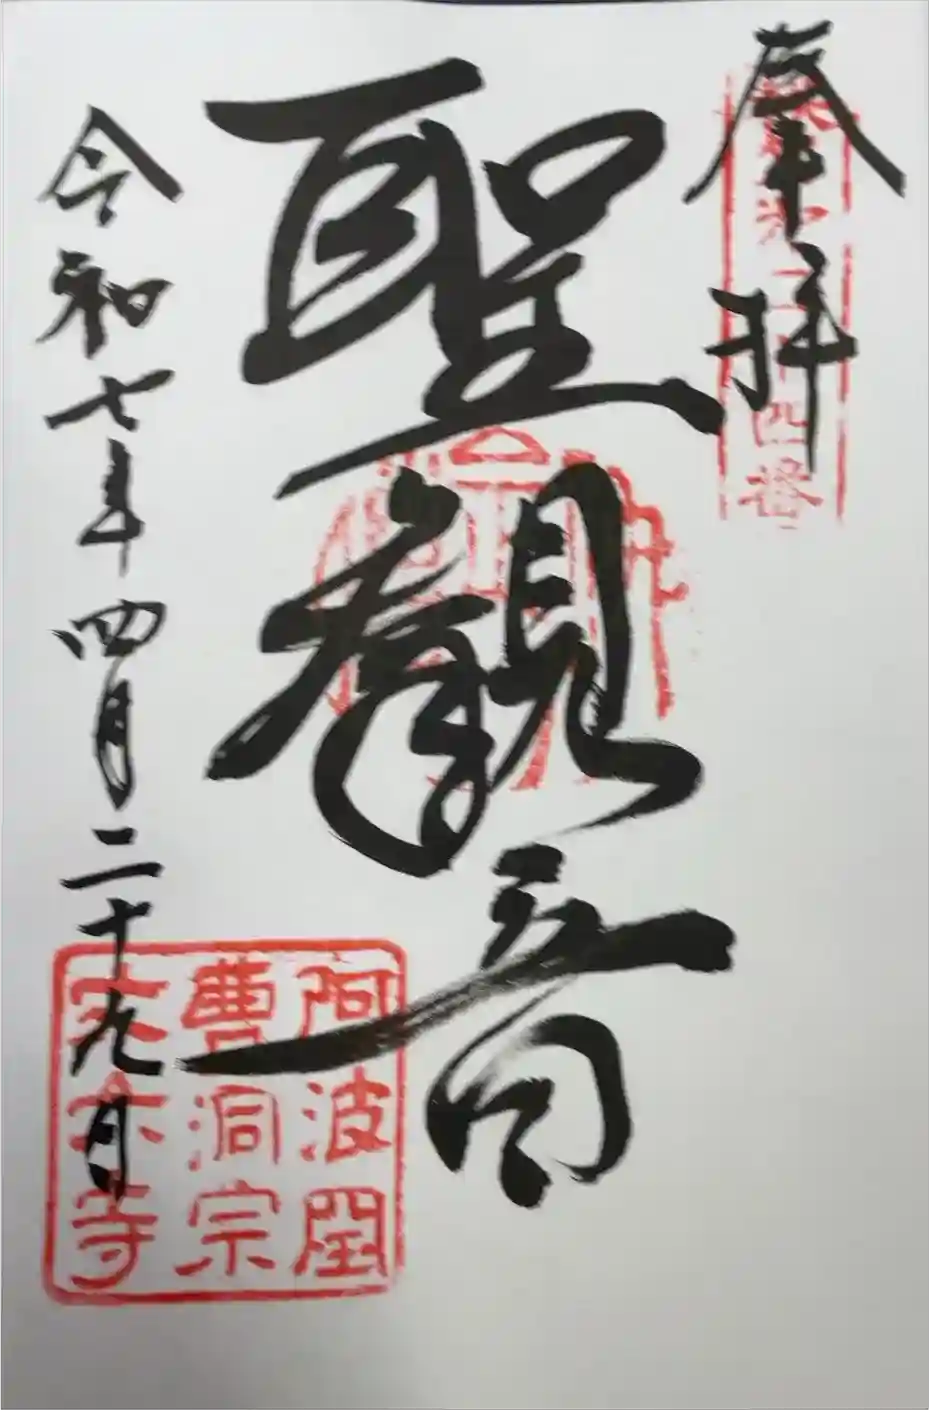 奉拝
四番
聖観音
阿波国
曹洞宗
寺
令和七年四月二十九日